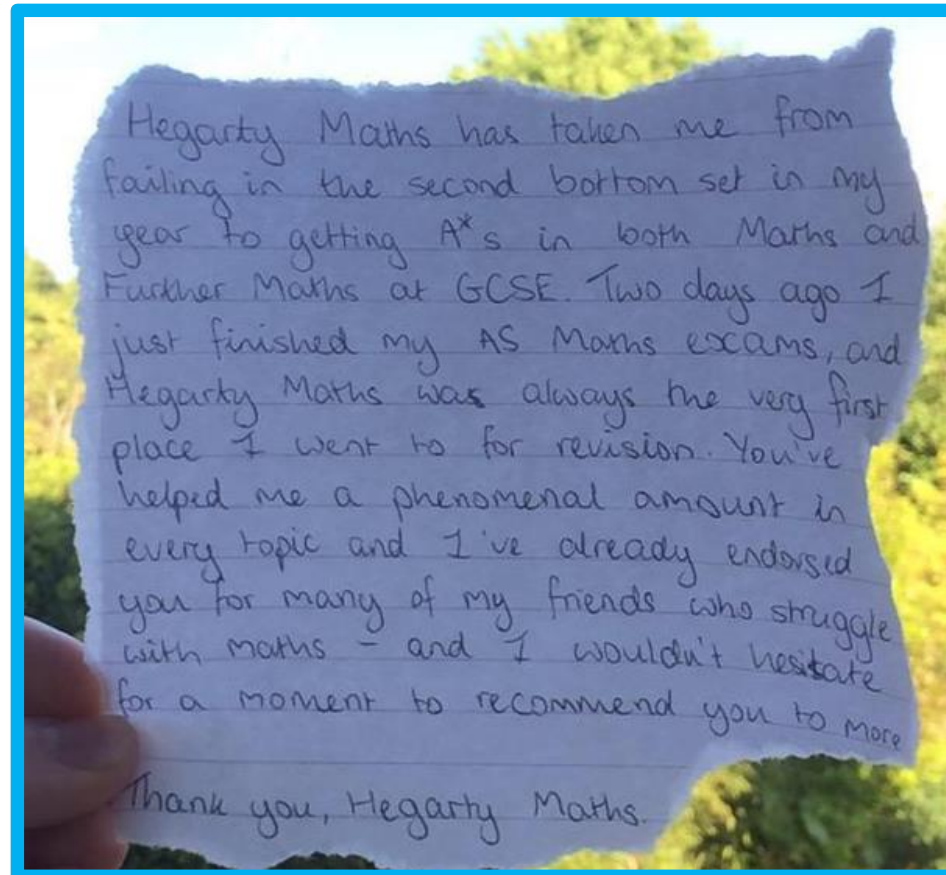 Hegarty Maths has taken me from
failing in the second bottom set in my
year to getting A*s in both Maths and
Further Maths at GCSE. Two days ago I
just finished my AS Maths exams, and
Hegarty Maths was always the very first
place I went to for revision. You've
helped me a phenomenal amount in
every topic and I've already endorsed
you for many of my friends who struggle
with maths - and I wouldn't hesitate
for a moment to recommend you to more
Thank you, Hegarty Maths.